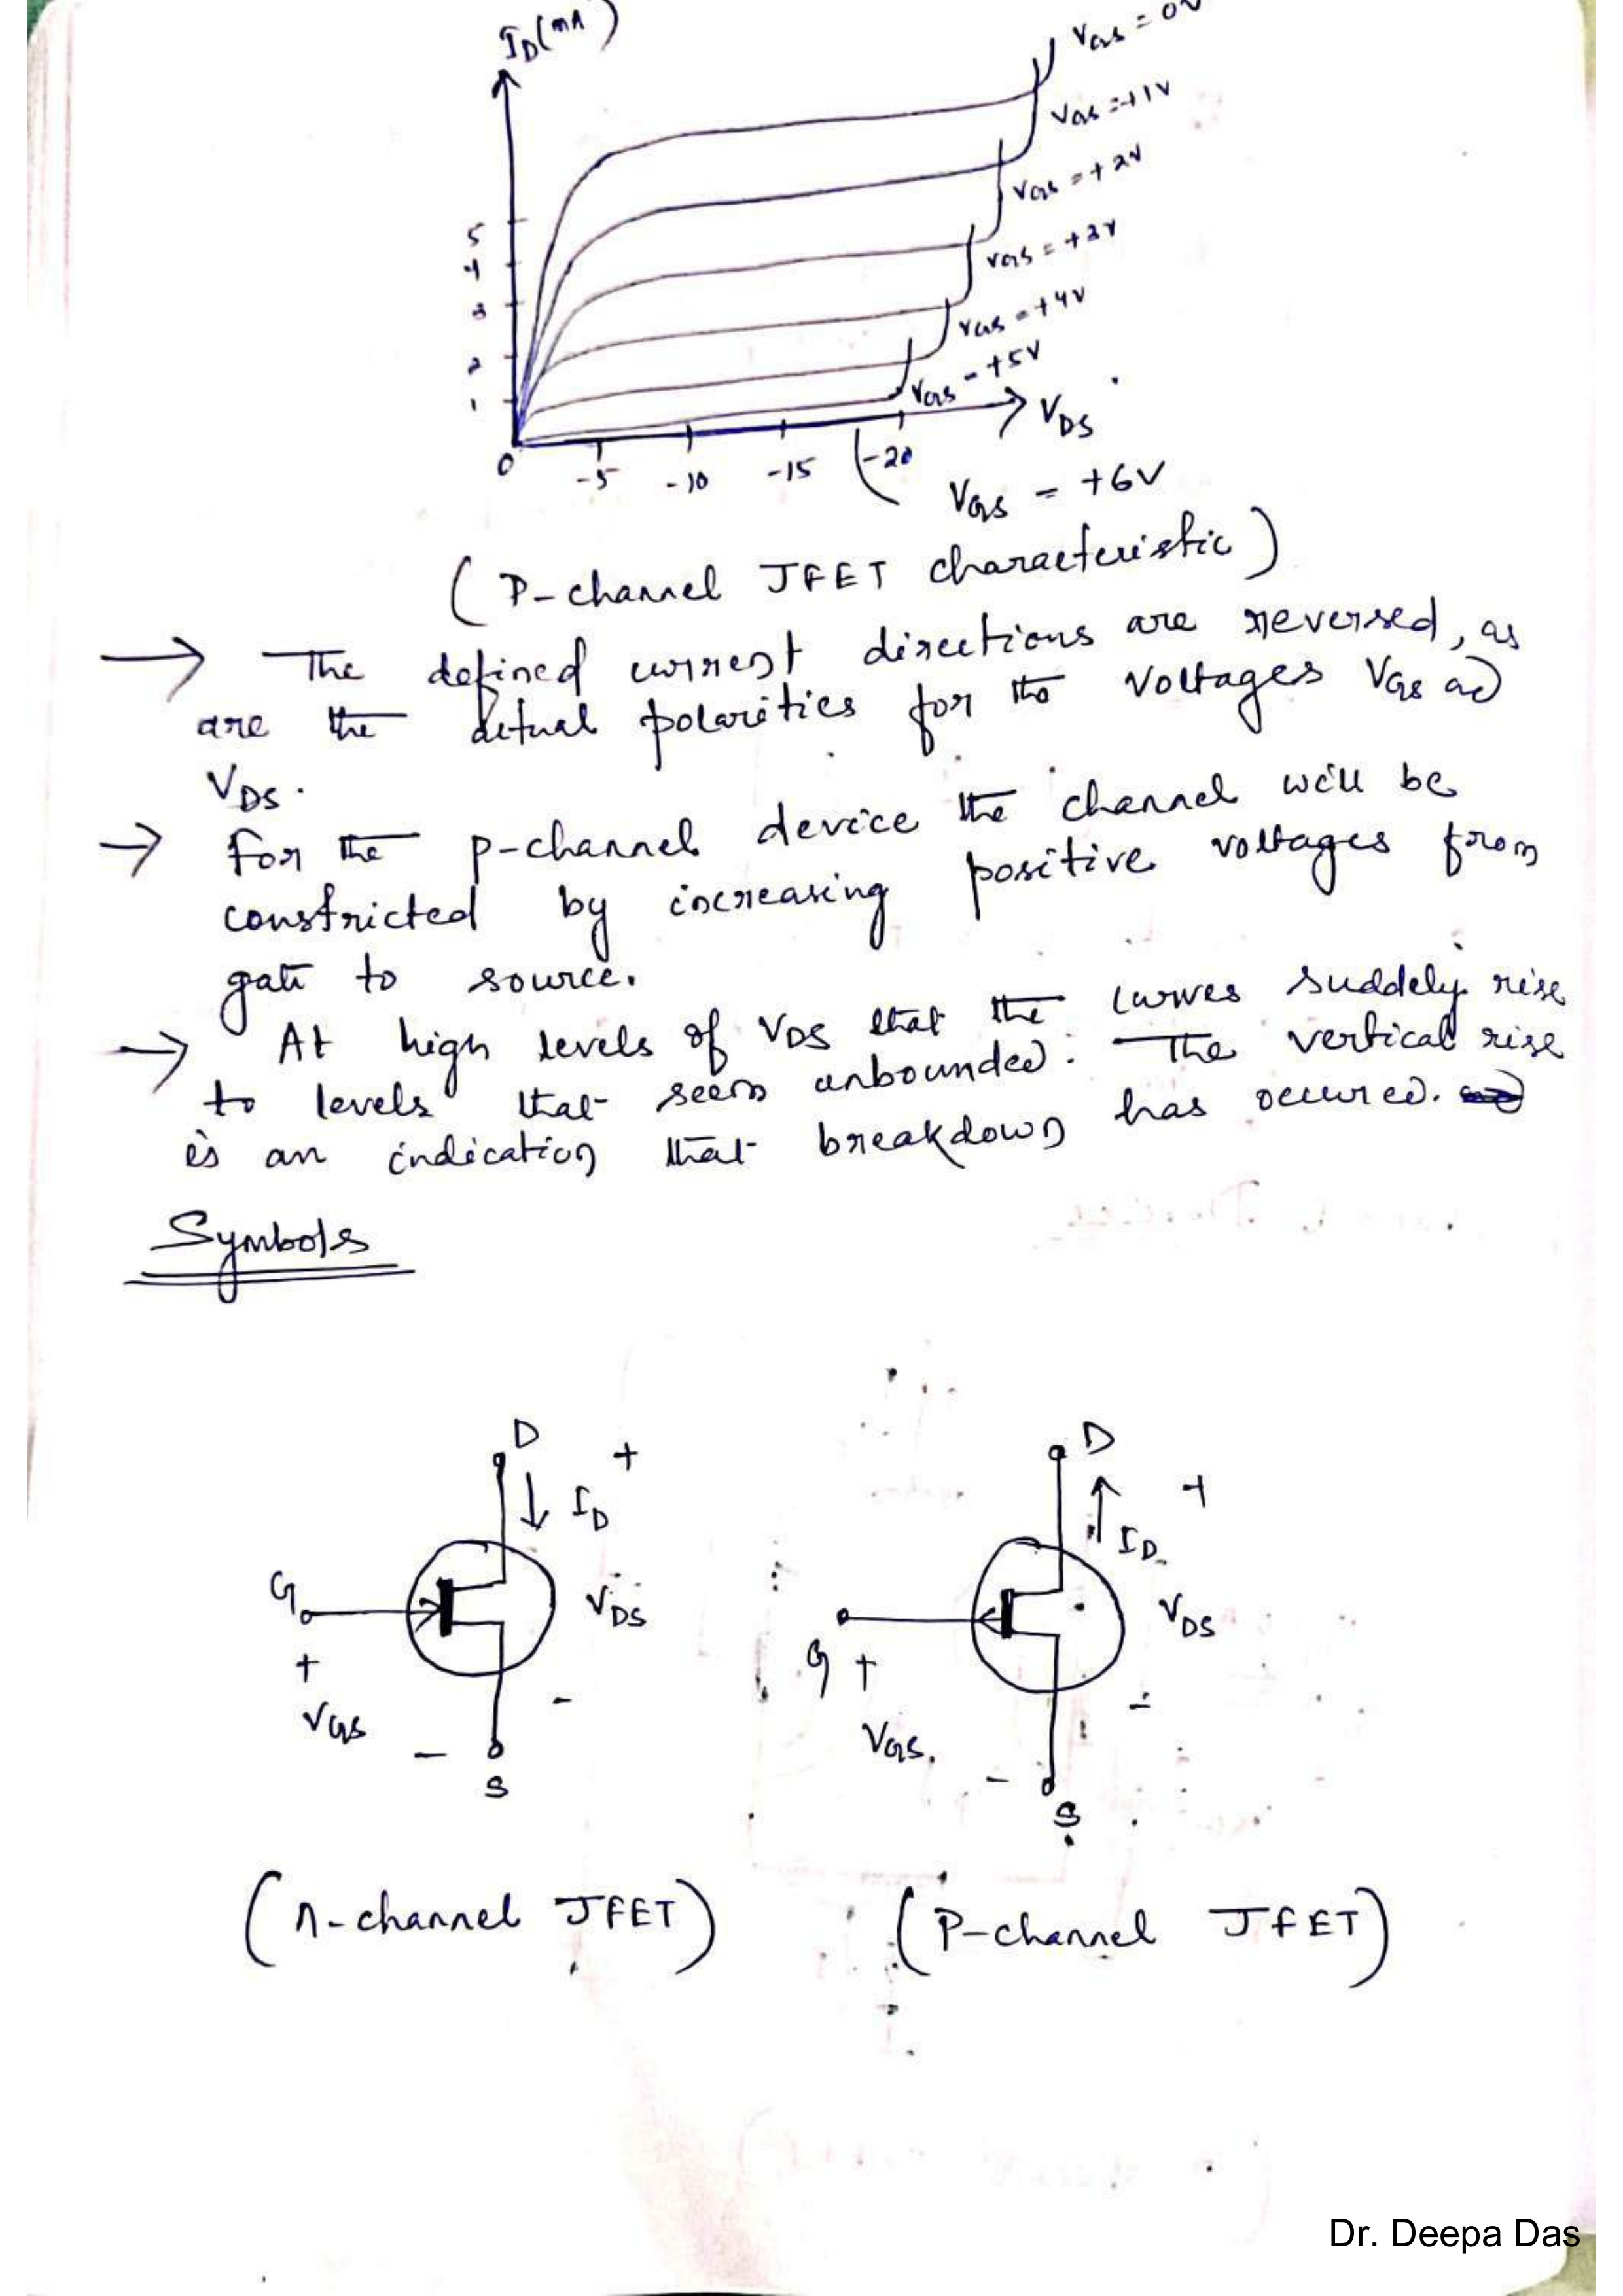 ID(mA)
VGS = 0V
VGS = +1V
VGS = +2V
VGS = +3V
VGS = +4V
VGS = +5V
5
4
3
2
1
0
-5
-10
-15
-20
VDS
VGS = +6V
(P-channel JFET characteristic)
→ The defined current directions are reversed, as
are the actual polarities for the voltages VGS and
VDS.
→ For the p-channel device the channel will be
constricted by increasing positive voltages from
gate to source.
→ At high levels of VDS that the curves suddely rise
to levels that seem unbounded. The vertical rise
is an indication that breakdown has occured.
Symbols
D
+
ID
G
VDS
+
VGS
-
-
S
D
+
ID
VDS
G +
VGS
-
-
S
(n-channel JFET)
(P-channel JFET)
Dr. Deepa Das